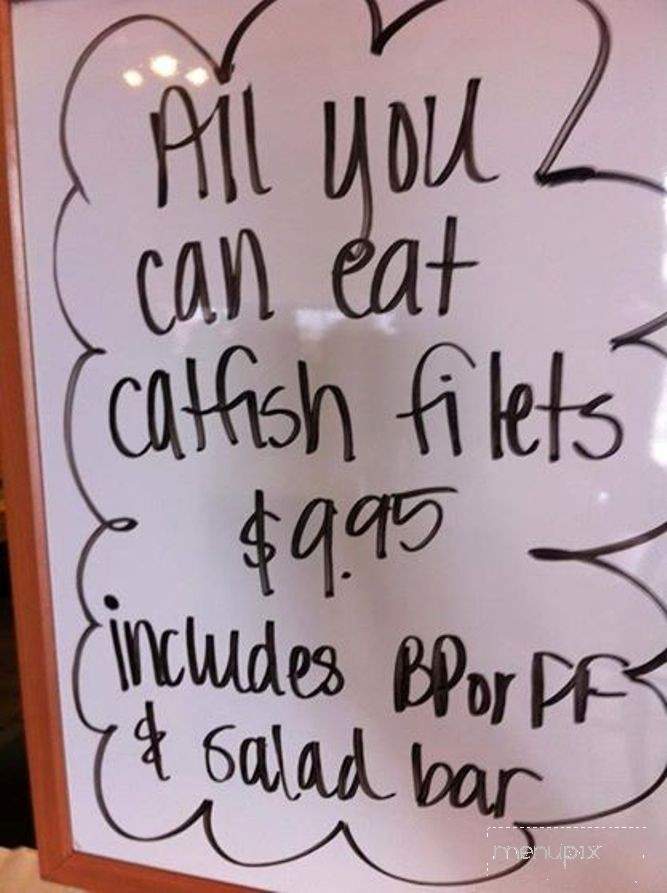 All you
can eat
catfish filets
$9.95
includes BP or FF
& salad bar
menupix